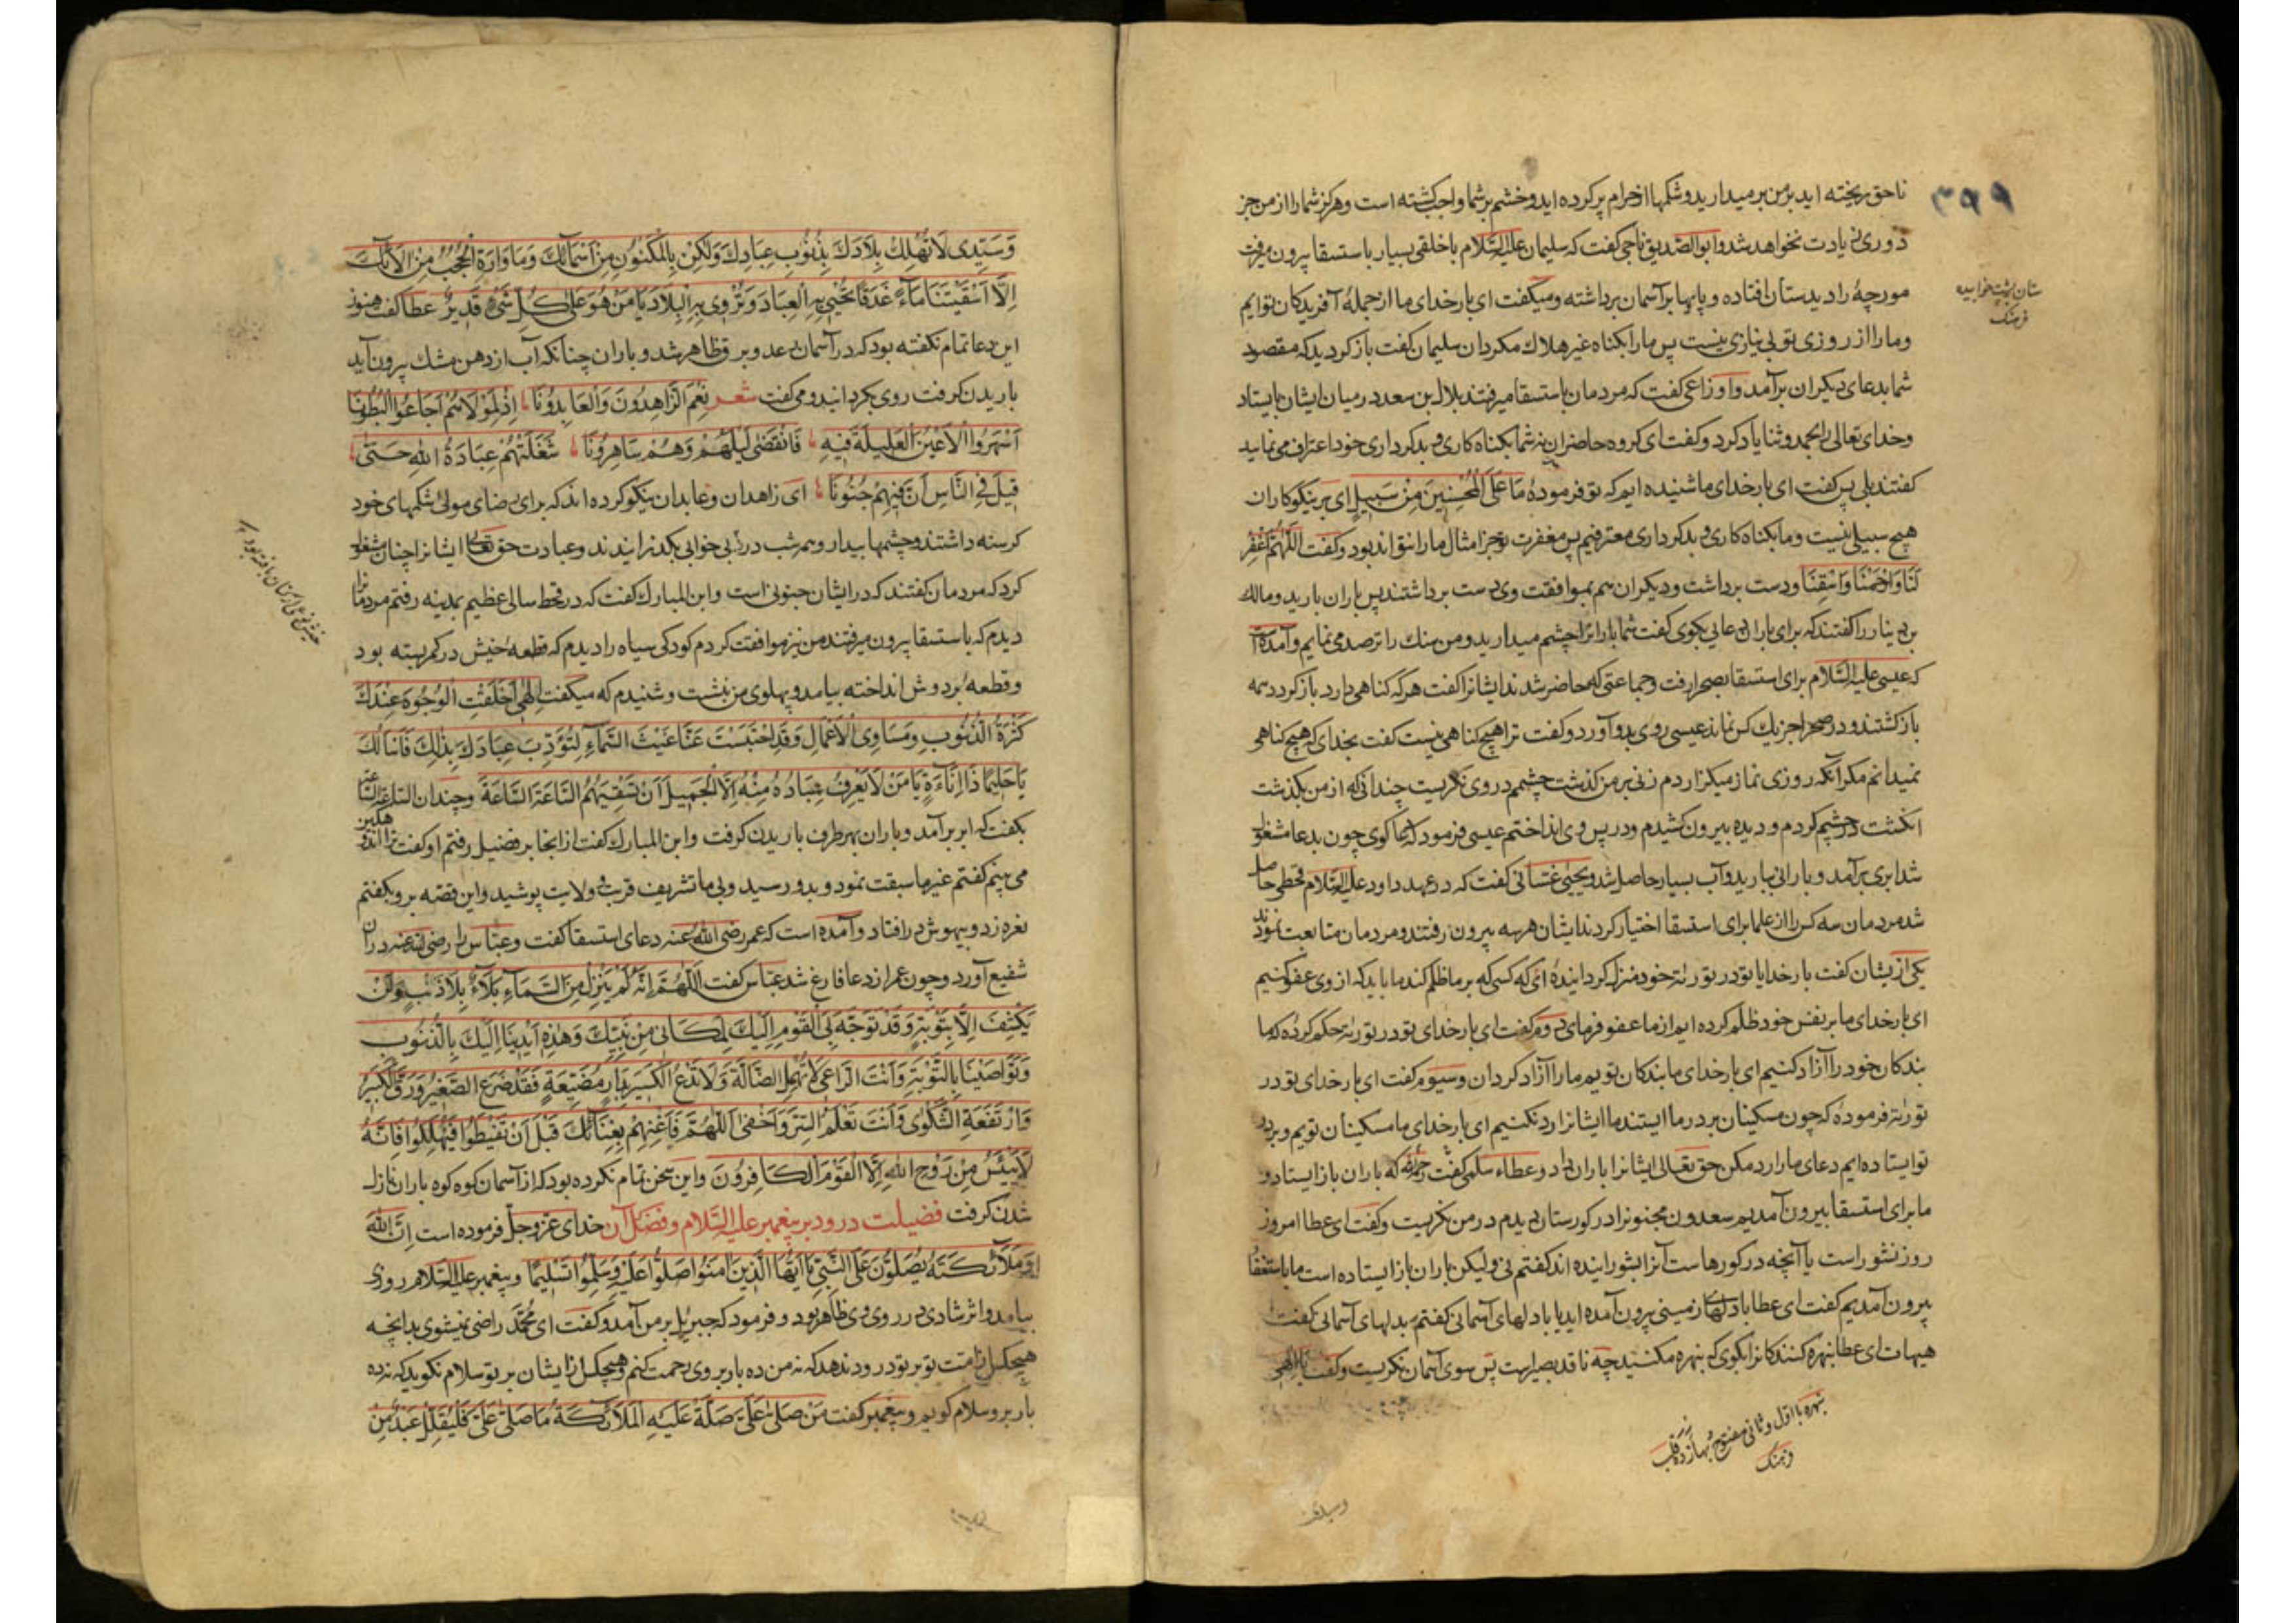 ناحق ریخته اید بر من برمیدارید وشکمها از حرام پر کرده اید وخشم بر شما واجب کشته است وهرکز شما را از من جز
دوری زیادت نخواهد شد وابو الصدیق ناجی کفت که سلیمان علیه السلام با خلقی بسیار باستسقا بیرون میرفت
مورچۀ را دید ستان افتاده و پایها بر آسمان برداشته ومیکفت ای بار خدای ما از جملۀ آفریدکان توایم
وما را از روزی تو بی نیازی نیست پس ما را بکناه غیر هلاك مکردان سلیمان کفت باز کردید که مقصود
شما بدعای دیکران برآمد واوزاعی کفت که مردمان باستسقا میرفتند بلال بن سعد در میان ایشان بایستاد
وخدای تعالی را بحمد وثنا یاد کرد وکفت ای کروه حاضران نه شما بکناه کاری وبدکرداری خود اعتراف می نمایید
کفتند بلی پس کفت ای بار خدای ما شنیده ایم که تو فرمودۀ مَا عَلَى الْمُحْسِنِينَ مِنْ سَبِيلٍ ای بر نیکوکاران
هیچ سبیلی نیست وما بکناه کاری وبدکرداری معترفیم پس مغفرت تو جز امثال ما را نتواند بود وکفت اللَّهُمَّ اغْفِرْ
لَنَا وَارْحَمْنَا وَاسْقِنَا ودست برداشت ودیکران هم بموافقت وی دست برداشتند پس باران بارید ومالك
بن دینار را کفتند که برای باران دعایی بکوی کفت شما باران را چشم میدارید ومن سنك را ترصد می نمایم وآمده است
که عیسی علیه السلام برای استسقا بصحرا رفت وجماعتی که حاضر شدند ایشانرا کفت هر که کناهی دارد باز کردد همه
باز کشتند ودر صحرا جز یك کس نماند عیسی روی بدو آورد وکفت ترا هیچ کناهی نیست کفت بخدای که هیچ کناهی
نمیدانم مکر آنکه روزی نماز میکزاردم زنی بر من کذشت چشمم در وی نکریست چندانی که از من بکذشت
انکشت در چشم کردم و دیده بیرون کشیدم ودر پس وی انداختم عیسی فرمود که دعا کوی چون بدعا مشغول
شد ابری برآمد و بارانی ببارید وآب بسیار حاصل شد ویحیی غسانی کفت که در عهد داود علیه السلام قحطی حاصل
شد مردمان سه کس را از علما برای استسقا اختیار کردند ایشان هر سه بیرون رفتند ومردمان متابعت نمودند
یکی از یشان کفت بار خدایا تو در توریة خود منزل کردانیدۀ ای که کسی که بر ما ظلم کند ما باید که از وی عفو کنیم
ای بار خدای ما بر نفس خود ظلم کرده ایم از ما عفو فرمای دوم کفت ای بار خدای تو در توریة حکم کردۀ که ما
بندکان خود را آزاد کنیم ای بار خدای ما بندکان توییم ما را آزاد کردان وسیوم کفت ای بار خدای تو در
توریة فرمودۀ که چون مسکینان بر در ما ایستند ما ایشانرا رد نکنیم ای بار خدای ما مسکینان توییم وبر در
تو ایستاده ایم دعای ما را رد مکن حق تعالی ایشانرا باران داد وعطاء سلمی کفت رحمه الله که باران باز ایستاد و
ما برای استسقا بیرون آمدیم سعدون مجنونرا در کورستان دیدم در من نکریست وکفت ای عطا امروز
روز نشور است یا آنچه در کورها ست آنرا بشورانیده اند کفتم نی ولیکن باران باز ایستاده است ما باستسقا
بیرون آمدیم کفت ای عطا با دلهای زمینی بیرون آمده اید یا با دلهای آسمانی کفتم بدلهای آسمانی کفت
هیهات ای عطا بنهره کنندکانرا بکوی که بنهره مکنید چه ناقد بصیرست پس سوی آسمان نکریست وکفت الهی
ستان بپشت خوابیده
فرهنک
۳۹۹
وَسَيِّدِي لَا تُهْلِكْ بِلَادَكَ بِذُنُوبِ عِبَادِكَ وَلٰكِنْ بِالْمَكْنُونِ مِنْ أَسْمَائِكَ وَمَا وَارَتِ الْحُجُبُ مِنْ آلَائِكَ
إِلَّا أَسْقَيْتَنَا مَاءً غَدَقًا تُحْيِي بِهِ الْعِبَادَ وَتُرْوِي بِهِ الْبِلَادَ يَا مَنْ هُوَ عَلَى كُلِّ شَيْءٍ قَدِيرٌ عطا کفت هنوز
این دعا تمام نکفته بود که در آسمان رعد و برق ظاهر شد و باران چنانکه آب از دهن مشك بیرون آید
باریدن کرفت روی بکردانید ومی کفت شعر نِعْمَ الزَّاهِدُونَ وَالْعَابِدُونَا إِذْ لِمَوْلَاهُمْ أَجَاعُوا الْبُطُونَا
أَسْهَرُوا الْأَعْيُنَ الْعَلِيلَةَ فِيهِ فَانْقَضَى لَيْلُهُمْ وَهُمْ سَاهِرُونَا شَغَلَتْهُمْ عِبَادَةُ اللهِ حَتَّى
قِيلَ فِي النَّاسِ أَنَّ فِيهِمْ جُنُونَا ای زاهدان وعابدان نیکو کرده اند که برای رضای مولی شکمهای خود
کرسنه داشتند وچشمها بیدار وهمه شب در بی خوابی بکذرانیدند وعبادت حق تعالی ایشانرا چنان مشغول
کرد که مردمان کفتند که در ایشان جنونی است وابن المبارك کفت که در قحط سالی عظیم بمدینه رفتم مردمانرا
دیدم که باستسقا بیرون میرفتند من نیز موافقت کردم کودکی سیاه را دیدم که قطعۀ خیش در کمر بسته بود
وقطعۀ بر دوش انداخته بیامد و پهلوی من بنشست وشنیدم که میکفت إِلٰهِي أَخْلَقَتِ الْوُجُوهَ عِنْدَكَ
كَثْرَةُ الذُّنُوبِ وَمَسَاوِي الْأَعْمَالِ وَقَدِ احْتَبَسْتَ عَنَّا غَيْثَ السَّمَاءِ لِتُؤَدِّبَ عِبَادَكَ بِذٰلِكَ فَأَسْأَلُكَ
يَا حَلِيمًا ذَا أَنَاءَةٍ يَا مَنْ لَا يَعْرِفُ عِبَادُهُ مِنْهُ إِلَّا الْجَمِيلَ أَنْ تَسْقِيَهُمُ السَّاعَةَ السَّاعَةَ وچندان الساعة الساعة
بکفت که ابر برآمد و باران بهر طرف باریدن کرفت وابن المبارك کفت از انجا بر فضیل رفتم او کفت ترا اندوهکین
می بینم کفتم غیر ما سبقت نمود و بدو رسید وبی ما تشریف قرب و ولایت پوشید واین قصه برو بکفتم
نعره زد و بیهوش در افتاد وآمده است که عمر رضی الله عنه دعای استسقا کفت وعباس را رضی الله عنه دران
شفیع آورد وچون عمر از دعا فارغ شد عباس کفت اللَّهُمَّ إِنَّهُ لَمْ يَنْزِلْ مِنَ السَّمَاءِ بَلَاءٌ بِلَا ذَنْبٍ وَلَنْ
يَكْشِفَ إِلَّا بِتَوْبَةٍ وَقَدْ تَوَجَّهَ بِيَ الْقَوْمُ إِلَيْكَ لِمَكَانِي مِنْ نَبِيِّكَ وَهٰذِهِ أَيْدِينَا إِلَيْكَ بِالذُّنُوبِ
وَنَوَاصِينَا بِالتَّوْبَةِ وَأَنْتَ الرَّاعِي لَا تُهْمِلُ الضَّالَّةَ وَلَا تَدَعُ الْكَسِيرَ بِدَارِ مَضْيَعَةٍ فَقَدْ ضَرَعَ الصَّغِيرُ وَرَقَّ الْكَبِيرُ
وَارْتَفَعَةِ الشَّكْوَى وَأَنْتَ تَعْلَمُ السِّرَّ وَأَخْفَى اللَّهُمَّ فَأَغِثْهُمْ بِغِيَاثِكَ قَبْلَ أَنْ تَقْنَطُوا فَيَهْلِكُوا فَإِنَّهُ
لَا يَيْئَسُ مِنْ رَوْحِ اللهِ إِلَّا الْقَوْمُ الْكَافِرُونَ واین سخن تمام نکرده بود که از آسمان کوه کوه باران نازل
شدن کرفت فضیلت درود بر پیغمبر علیه السلام وفضل آن خدای عز وجل فرموده است إِنَّ اللهَ
وَمَلَائِكَتَهُ يُصَلُّونَ عَلَى النَّبِيِّ يَا أَيُّهَا الَّذِينَ آمَنُوا صَلُّوا عَلَيْهِ وَسَلِّمُوا تَسْلِيمًا وپیغمبر علیه السلام روزی
بیامد واثر شادی در روی وی ظاهر بود و فرمود که جبریل بر من آمد وکفت ای محمد راضی نمیشوی بدانچه
هیچکس از امت تو بر تو درود ندهد که نه من ده بار بر وی رحمت کنم وهیچکس از ایشان بر تو سلام نکوید که نه ده
بار برو سلام کویم وپیغمبر کفت مَنْ صَلَّى عَلَيَّ صَلَّتْ عَلَيْهِ الْمَلَائِكَةُ مَا صَلَّى عَلَيَّ فَلْيُقَلِّلْ عَبْدٌ مِنْ